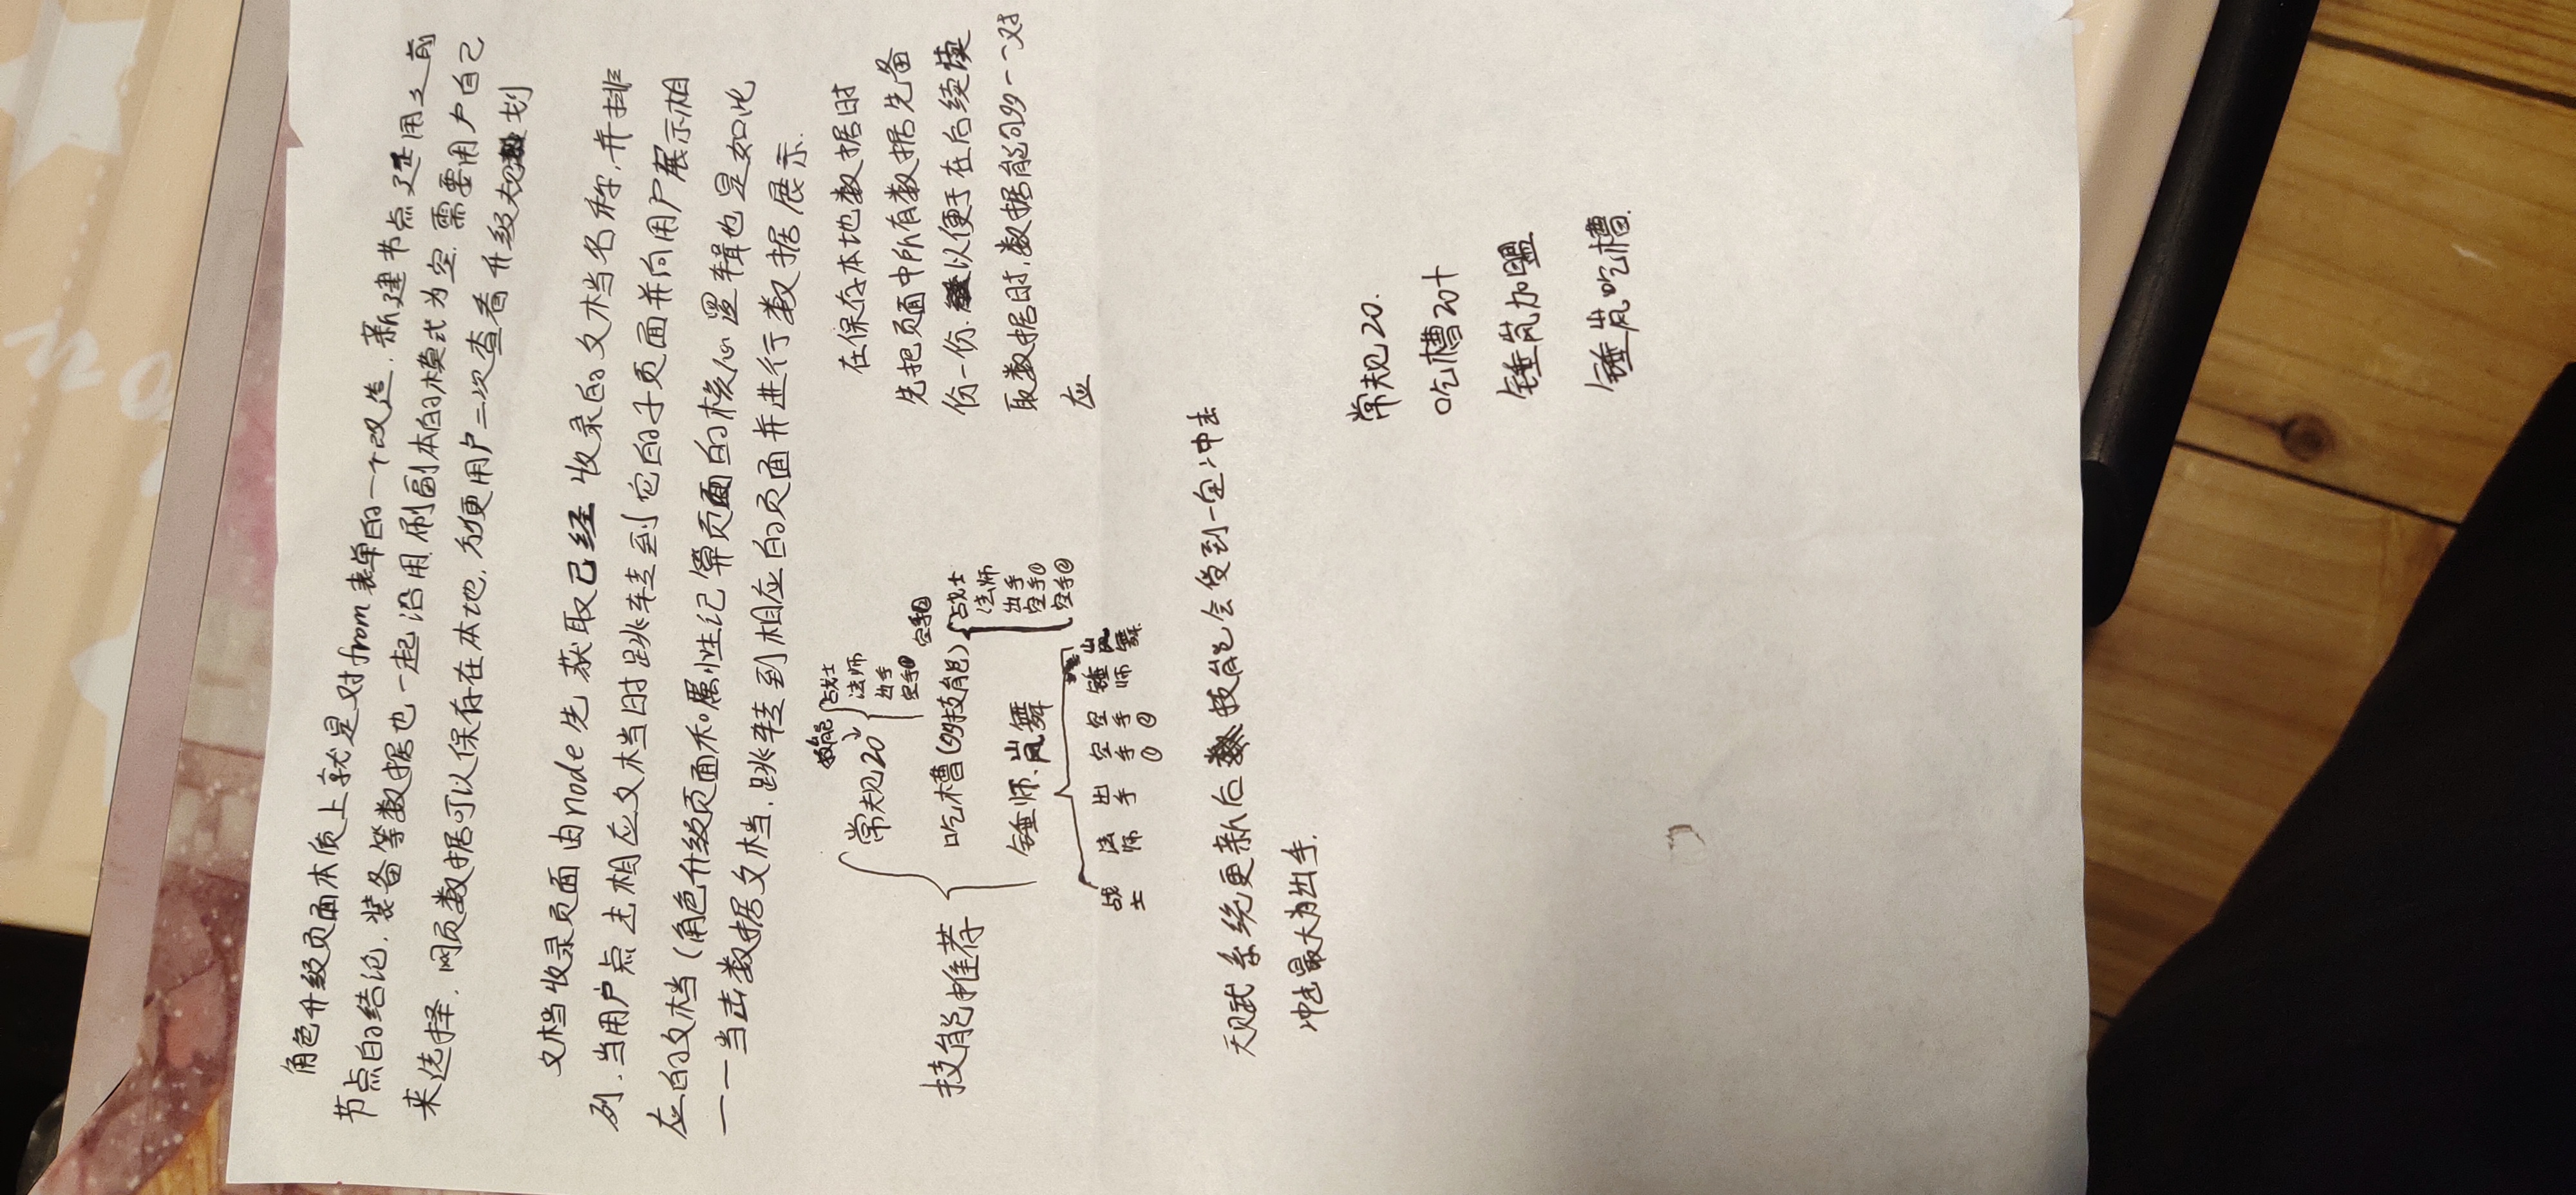 角色升级页面本质上就是对from表单的一个改造.新建节点选用之前
节点的结论.装备等数据也一起沿用.刷副本的模式为空.需要用户自己
来选择.网页数据可以保存在本地.方便用户二次查看升级规划
文档收录页面由node先获取已经收录的文档名称,并排
列.当用户点击相应文档时跳转到它的子页面并向用户展示相
应的文档(角色升级页面和属性纪算页面的核心逻辑也是如此
——当击数据文档.跳转到相应的页面并进行数据展示.
技能推荐
技能
常规20
战士
法师
出手
空手①
空手②
吃槽(99技能)
战士
法师
出手
空手①
空手②
锤师.岚舞
战士
法师
出手
空手①
空手②
锤师
岚舞
在保存本地数据时
先把页面中所有数据先备
份一份.以便于在后续读
取数据时,数据能够一一对
应
天赋系统更新后技能会受到一定冲击
冲击最大为出手.
常规20.
吃槽20+
锤岚加盟
锤岚吃槽.